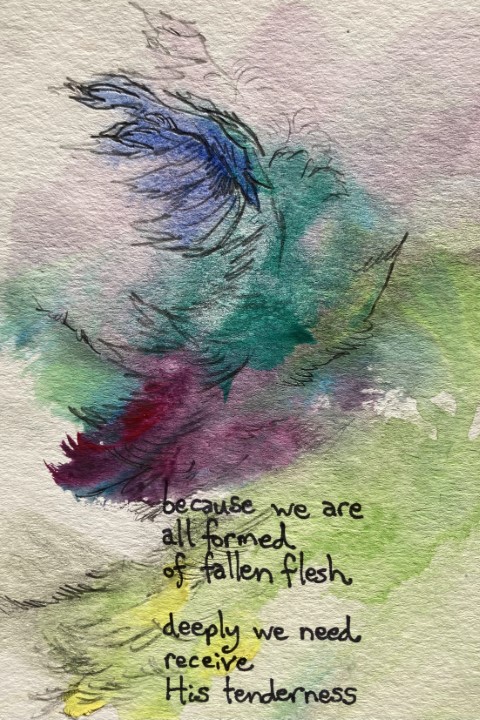 because we are
all formed
of fallen flesh
deeply we need
receive
His tenderness